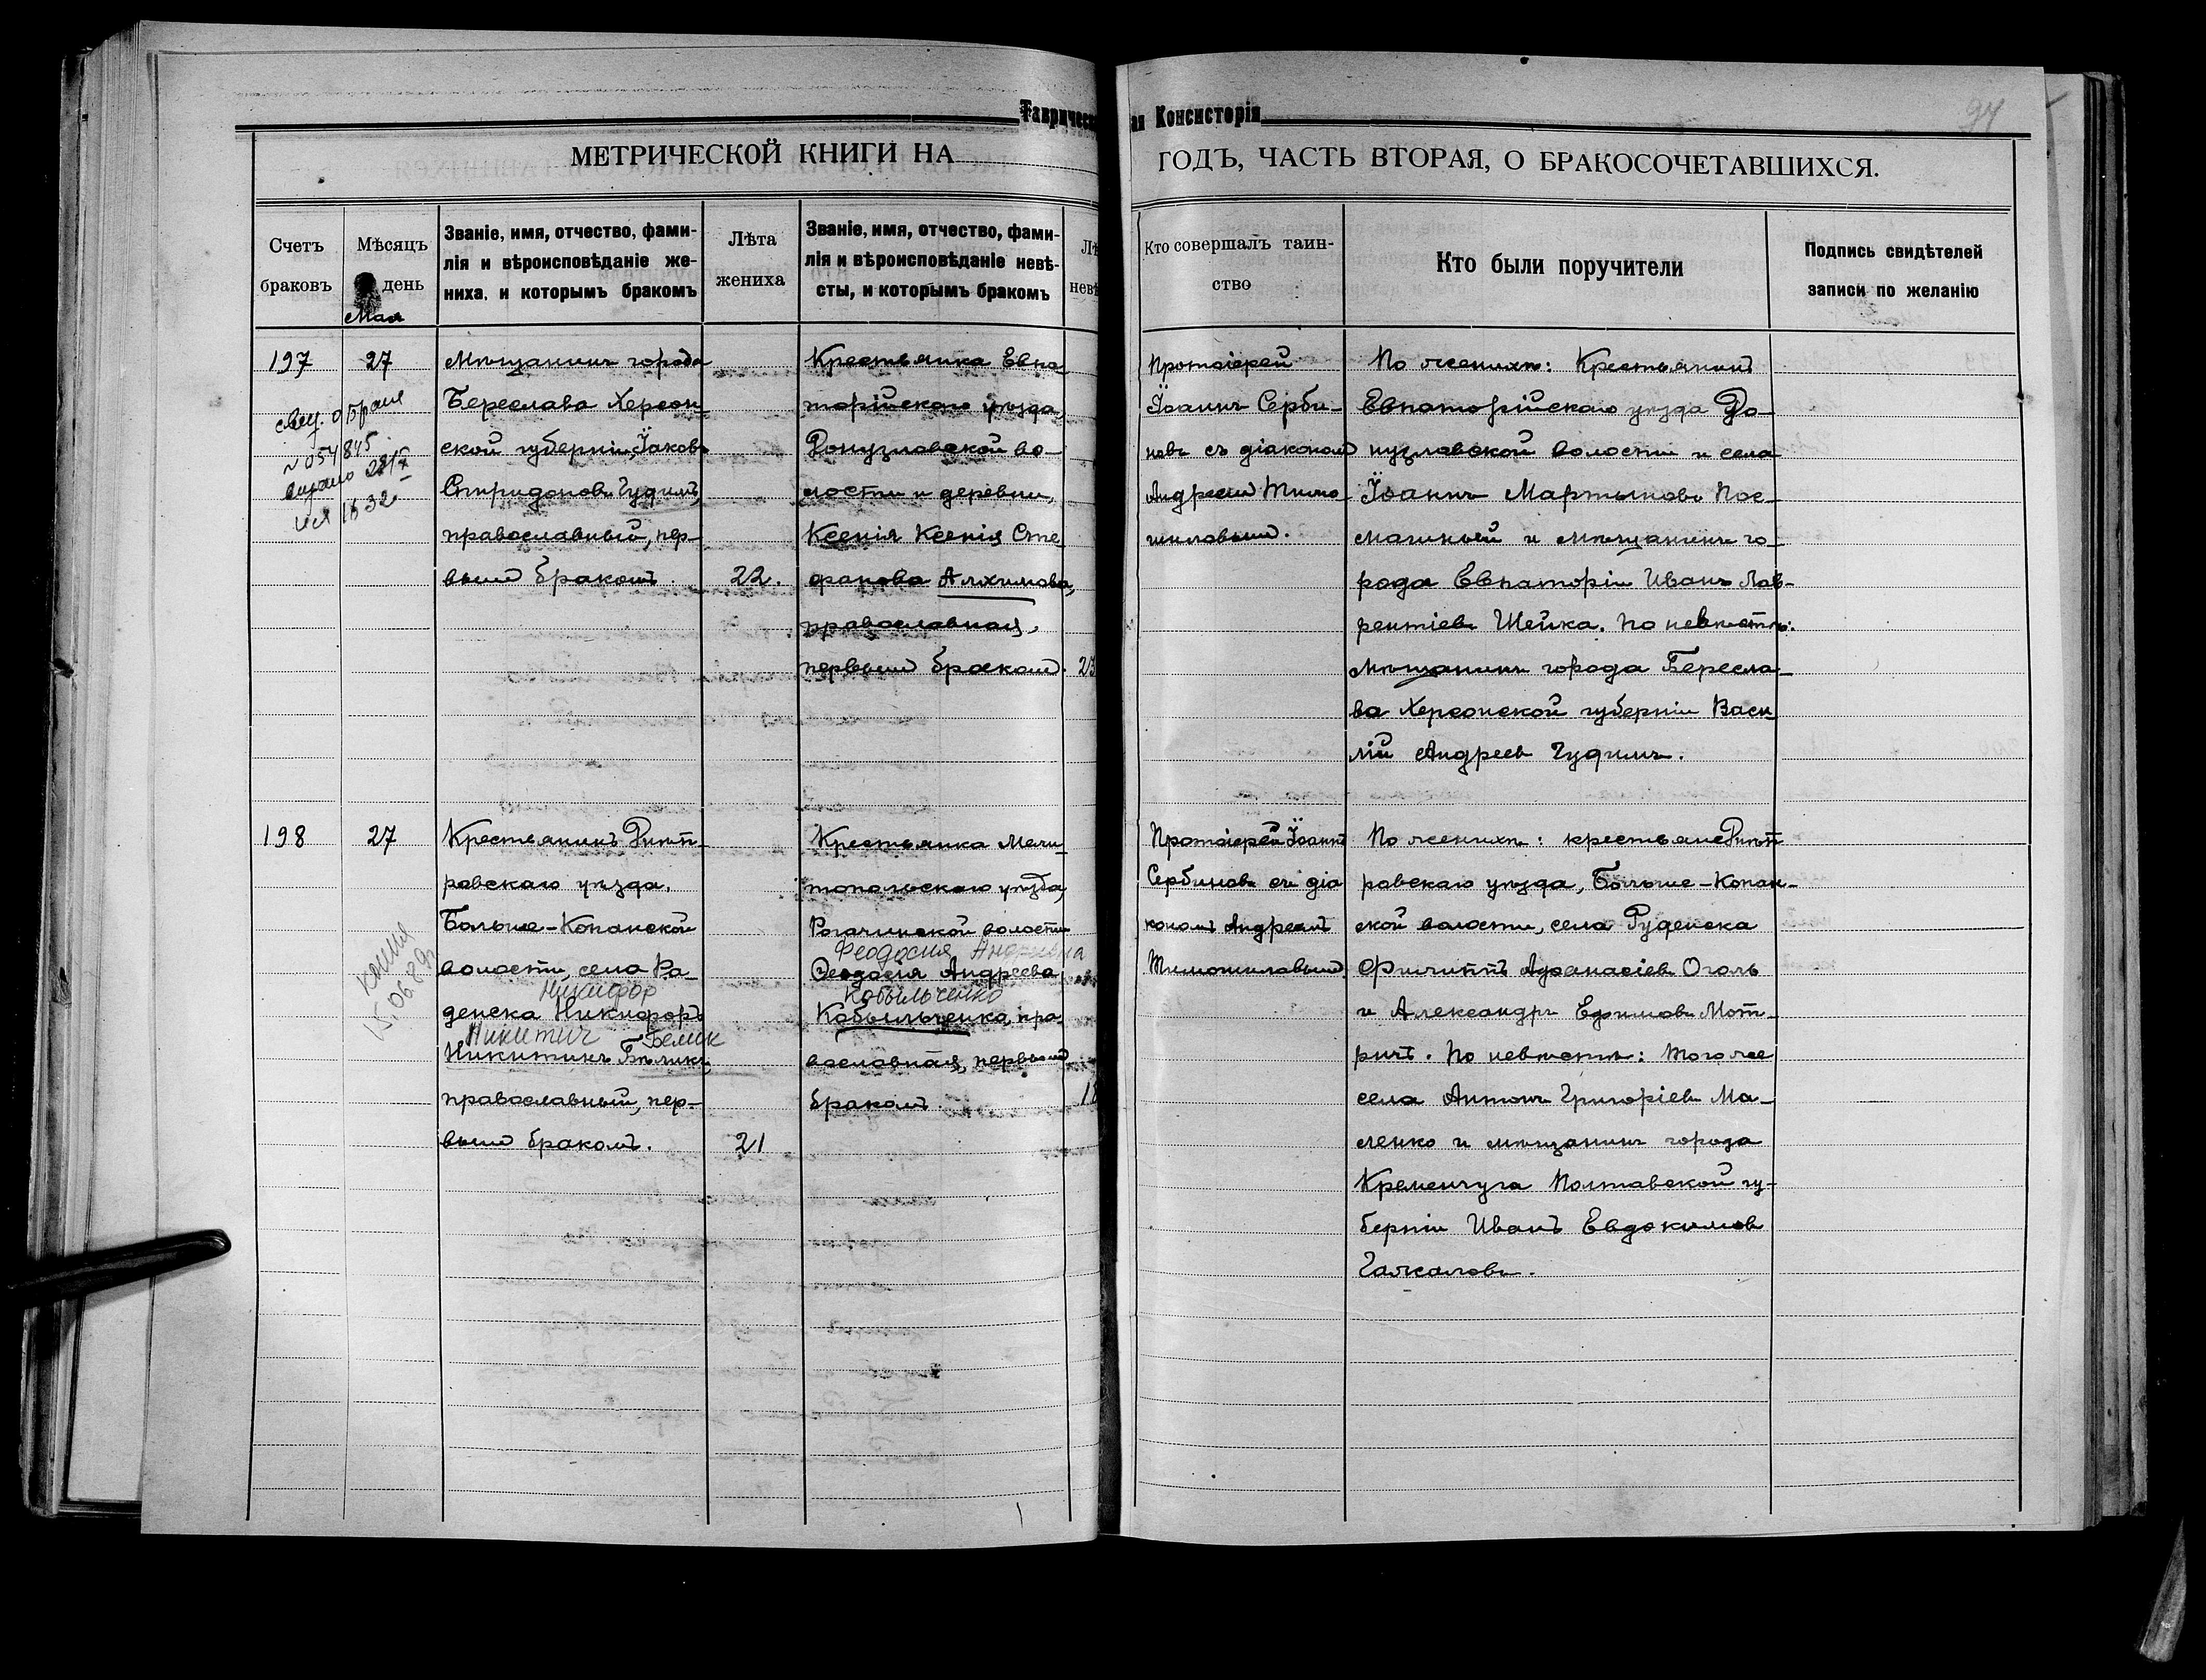 Таврическ
ая Консисторія
94
МЕТРИЧЕСКОЙ КНИГИ НА
ГОДЪ, ЧАСТЬ ВТОРАЯ, О БРАКОСОЧЕТАВШИХСЯ.
Счетъ браковъ
Мѣсяцъ день
Мая
Званіе, имя, отчество, фами-
лія и вѣроисповѣданіе же-
ниха, и которымъ бракомъ
Лѣта
жениха
Званіе, имя, отчество, фами-
лія и вѣроисповѣданіе невѣ-
сты, и которымъ бракомъ
Лѣ
невѣ
Кто совершалъ таин-
ство
Кто были поручители
Подпись свидѣтелей
записи по желанію
197
27
свид. о браке
№ 054845
выдано
Мѣщанинъ города
Береслава Херсон-
ской губерніи, Іаковъ
Спиридоновъ Гудимъ,
православный, пер-
вымъ бракомъ.
22.
Крестьянка Евпа-
торійскаго уѣзда,
Донузлавской во-
лости и деревни,
Ксенія Ксенія Сте-
фанова Алхимова,
православная,
первымъ бракомъ.
23
Протоіерей
Іоаннъ Серби-
новъ съ діакономъ
Андреемъ Тимо-
шиловымъ.
По женихѣ: Крестьянинъ
Евпаторійскаго уѣзда До-
нузлавской волости и села
Іоаннъ Мартыновъ Пос-
магиный и мѣщанинъ го-
рода Евпаторіи Иванъ Лав-
рентіевъ Шейка. По невѣстѣ:
Мѣщанинъ города Бересла-
ва Херсонской губерніи Васи-
лій Андреев Гудимъ.
198
27
копия
15.06.89
Крестьянинъ Днѣп-
ровскаго уѣзда,
Больше-Копанской
волости, села Ра-
Никифор
денска Никифоръ
Никитич Белик
Никитинъ Бѣликъ,
православный, пер-
вымъ бракомъ.
21
Крестьянка Мели-
топольскаго уѣзда,
Рогачинской волости
Феодосия Андреевна
Ѳеодосія Андреева
Кобыльченко
Кобыльченко, пра-
вославная, первымъ
бракомъ.
18
Протоіерей Іоаннъ
Сербиновъ съ діа
кономъ Андреемъ
Тимошиловымъ.
По женихѣ: крестьяне Днѣп
ровскаго уѣзда, Больше-Копан-
ской волости, села Руденска
Филиппъ Афанасіевъ Оголь
и Александръ Ефимовъ Мот-
ричъ. По невѣстѣ: того же
села Антонъ Григоріевъ Ма-
ленко и мѣщанинъ города
Кременчуга Полтавской гу-
берніи Иванъ Евдокимовъ
Гажаловъ.